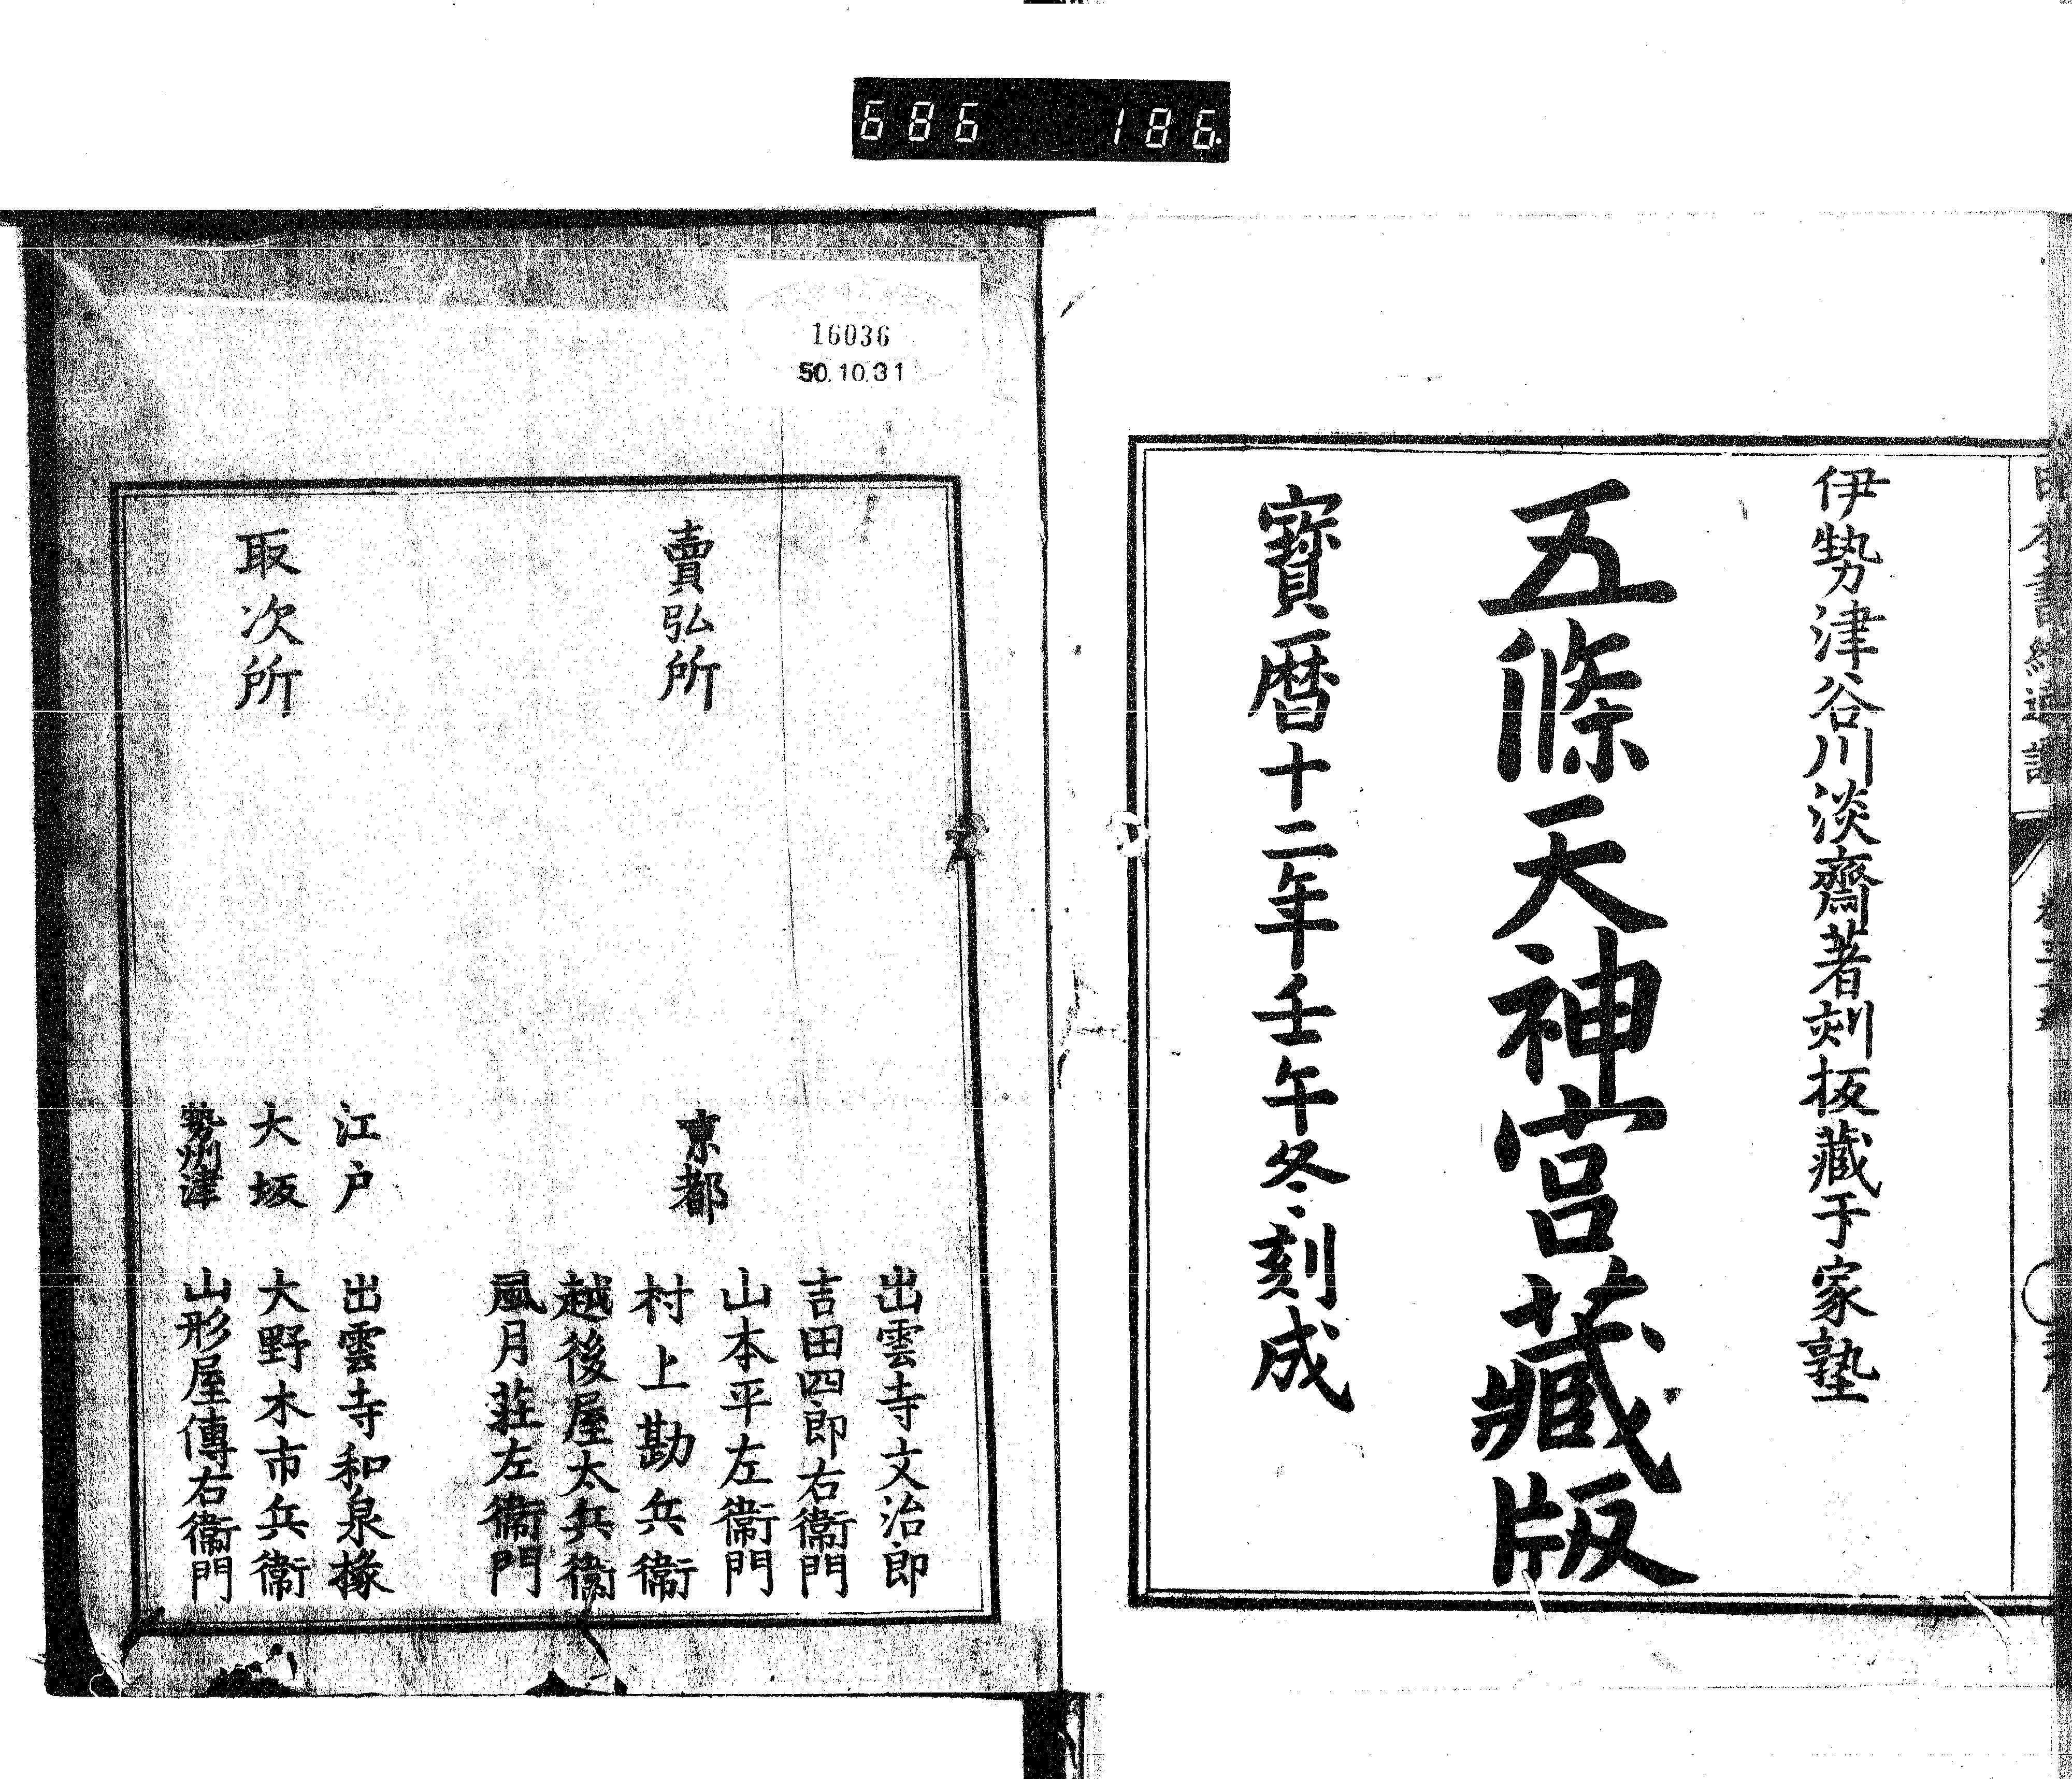 686 186.
伊勢津谷川淡齋著刻板藏于家塾
五條天神宮藏版
寶曆十二年壬午冬刻成
16036
50.10.31
賣弘所
京都
出雲寺文治郎
吉田四郎右衞門
山本平左衞門
村上勘兵衞
越後屋太兵衞
風月莊左衞門
取次所
江戶 出雲寺和泉掾
大坂 大野木市兵衞
勢州津 山形屋傳右衞門